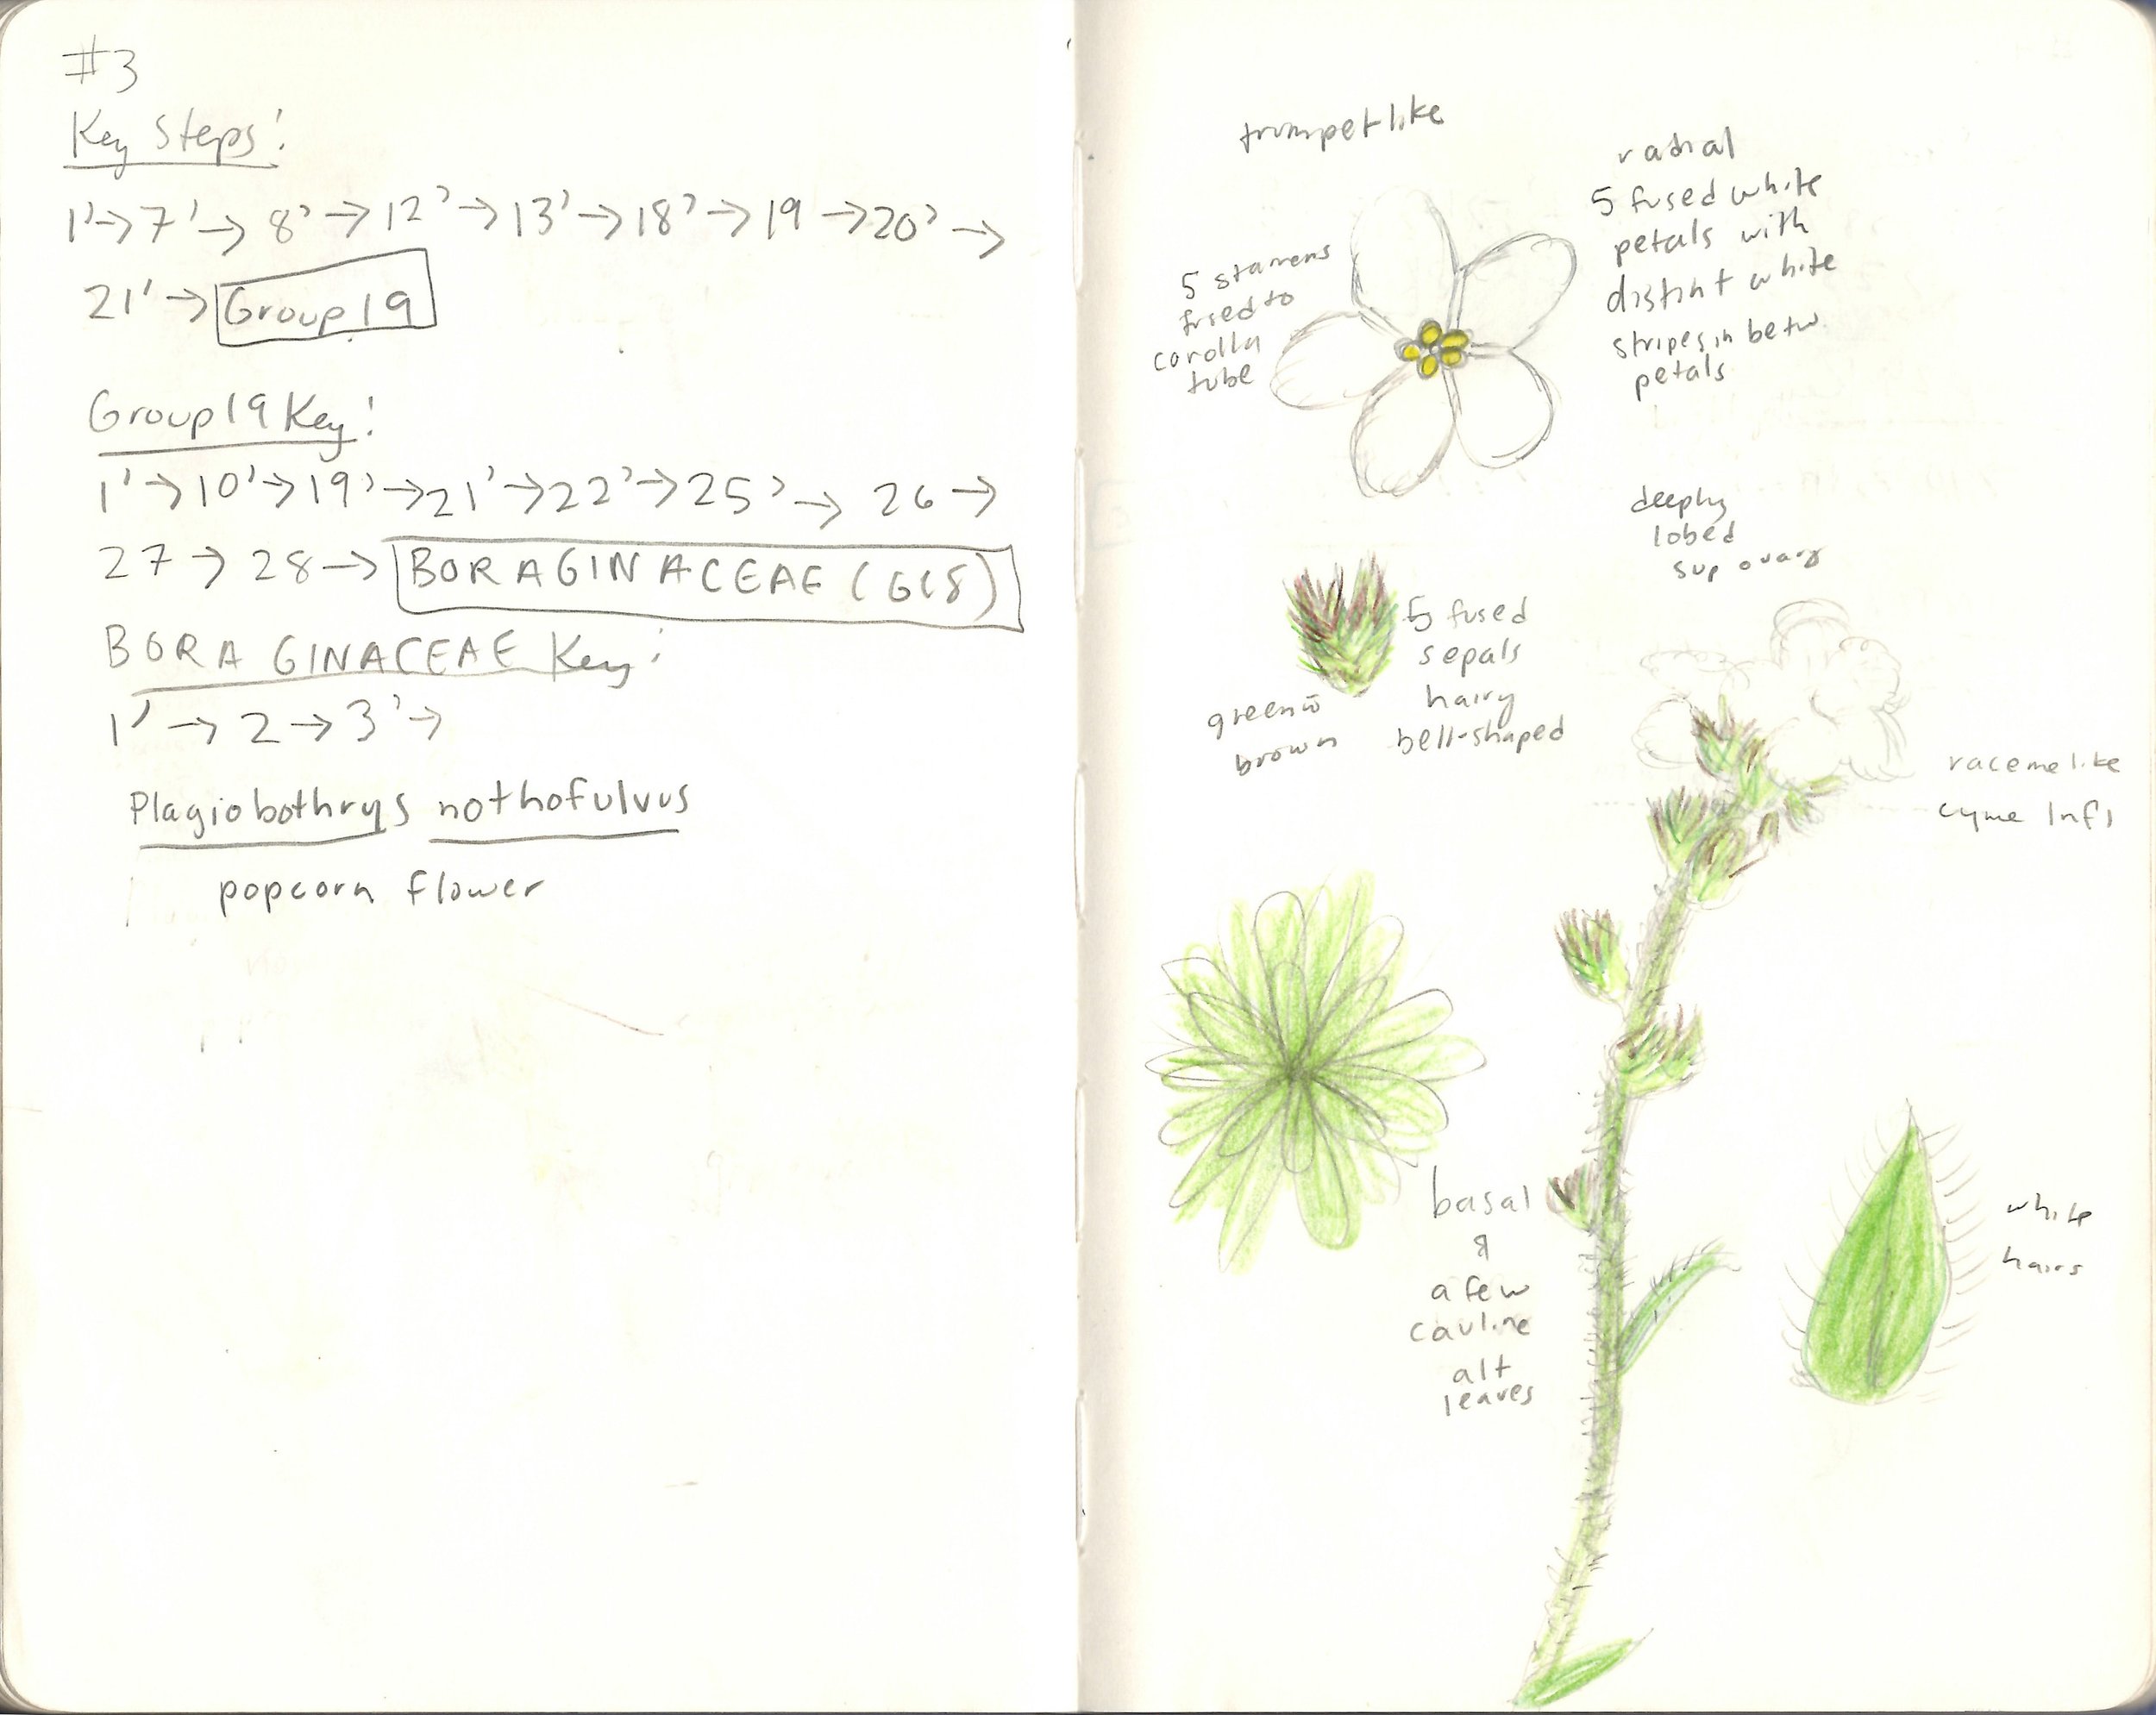 #3
Key Steps:
1' → 7' → 8' → 12' → 13' → 18' → 19 → 20' →
21' → Group 19
Group 19 Key:
1' → 10' → 19' → 21' → 22' → 25' → 26 →
27 → 28 → BORAGINACEAE (G18)
BORAGINACEAE Key:
1' → 2 → 3' →
Plagiobothrys nothofulvus
popcorn flower
trumpetlike
5 stamens
fused to
corolla
tube
radial
5 fused white
petals with
distint white
stripes in betw.
petals
deeply
lobed
sup ovary
5 fused
sepals
hairy
bell-shaped
green w̄
brown
racemelike
cyme Infl
basal
&
a few
cauline
alt
leaves
white
hairs